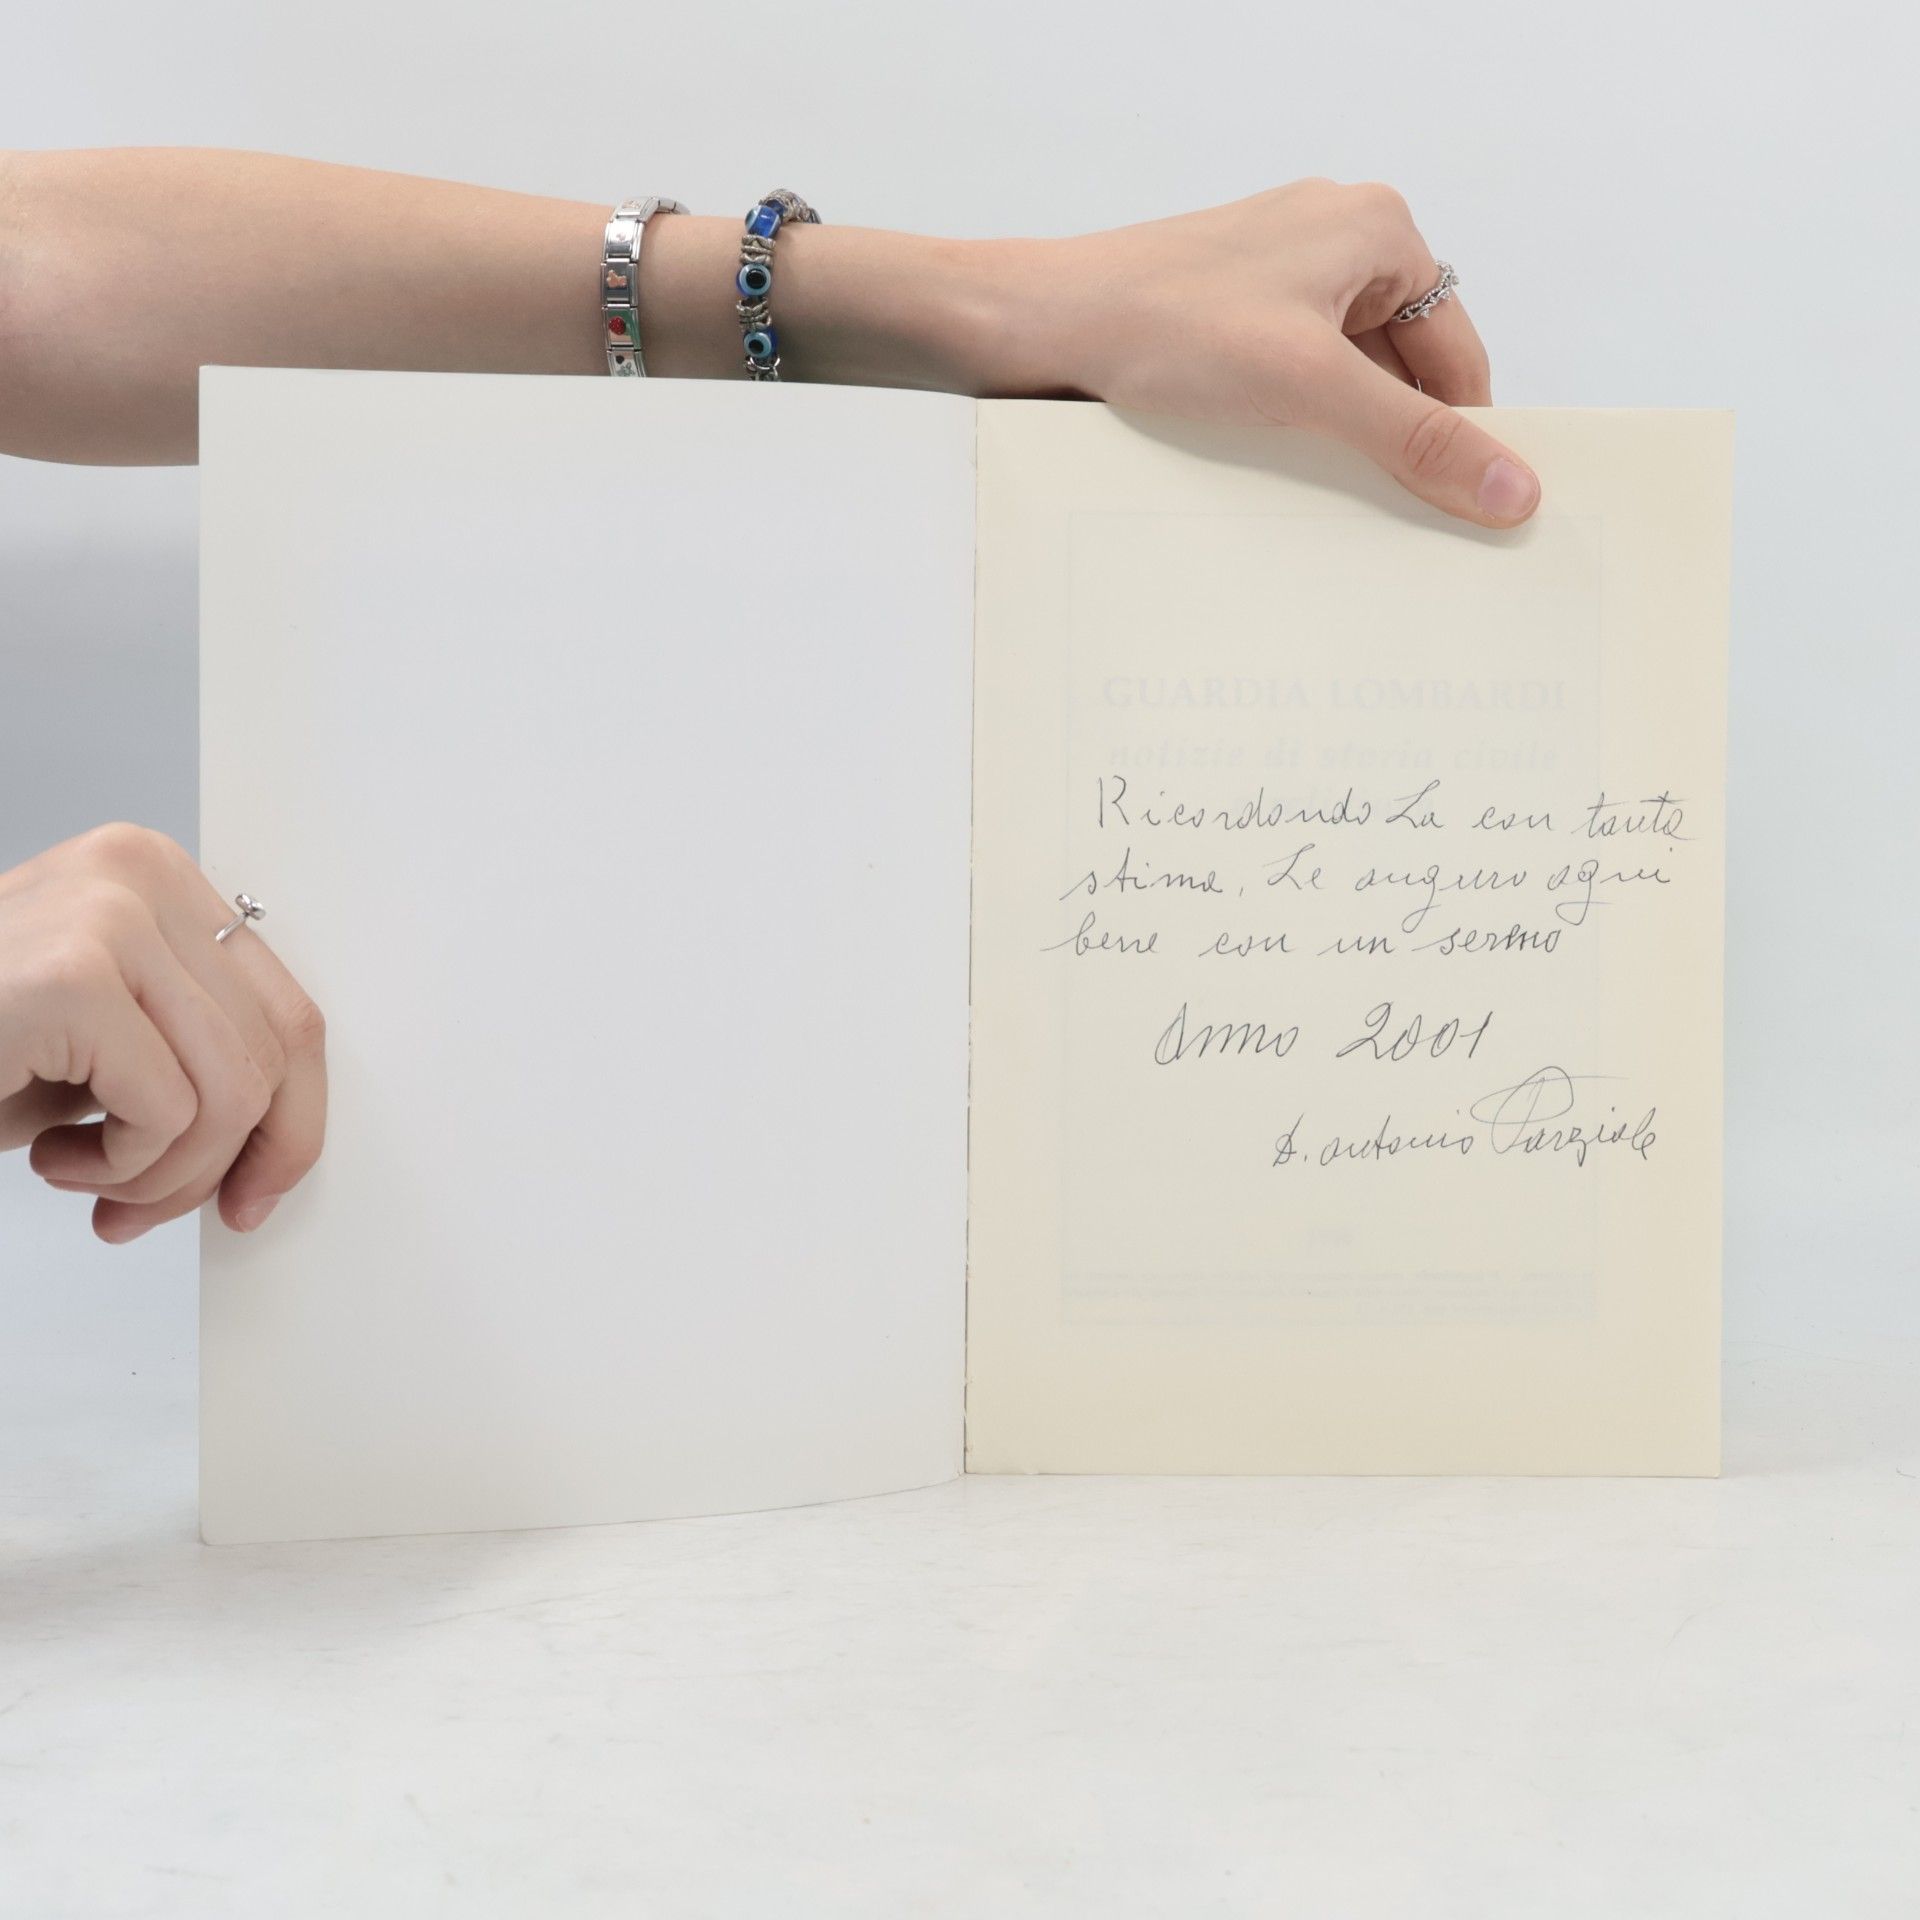 GUARDIA LOMBARDI
notizie di storia civile
Ricordando La con tanta
stima, Le auguro ogni
bene con un sereno
Anno 2001
D. Antonio Parziale